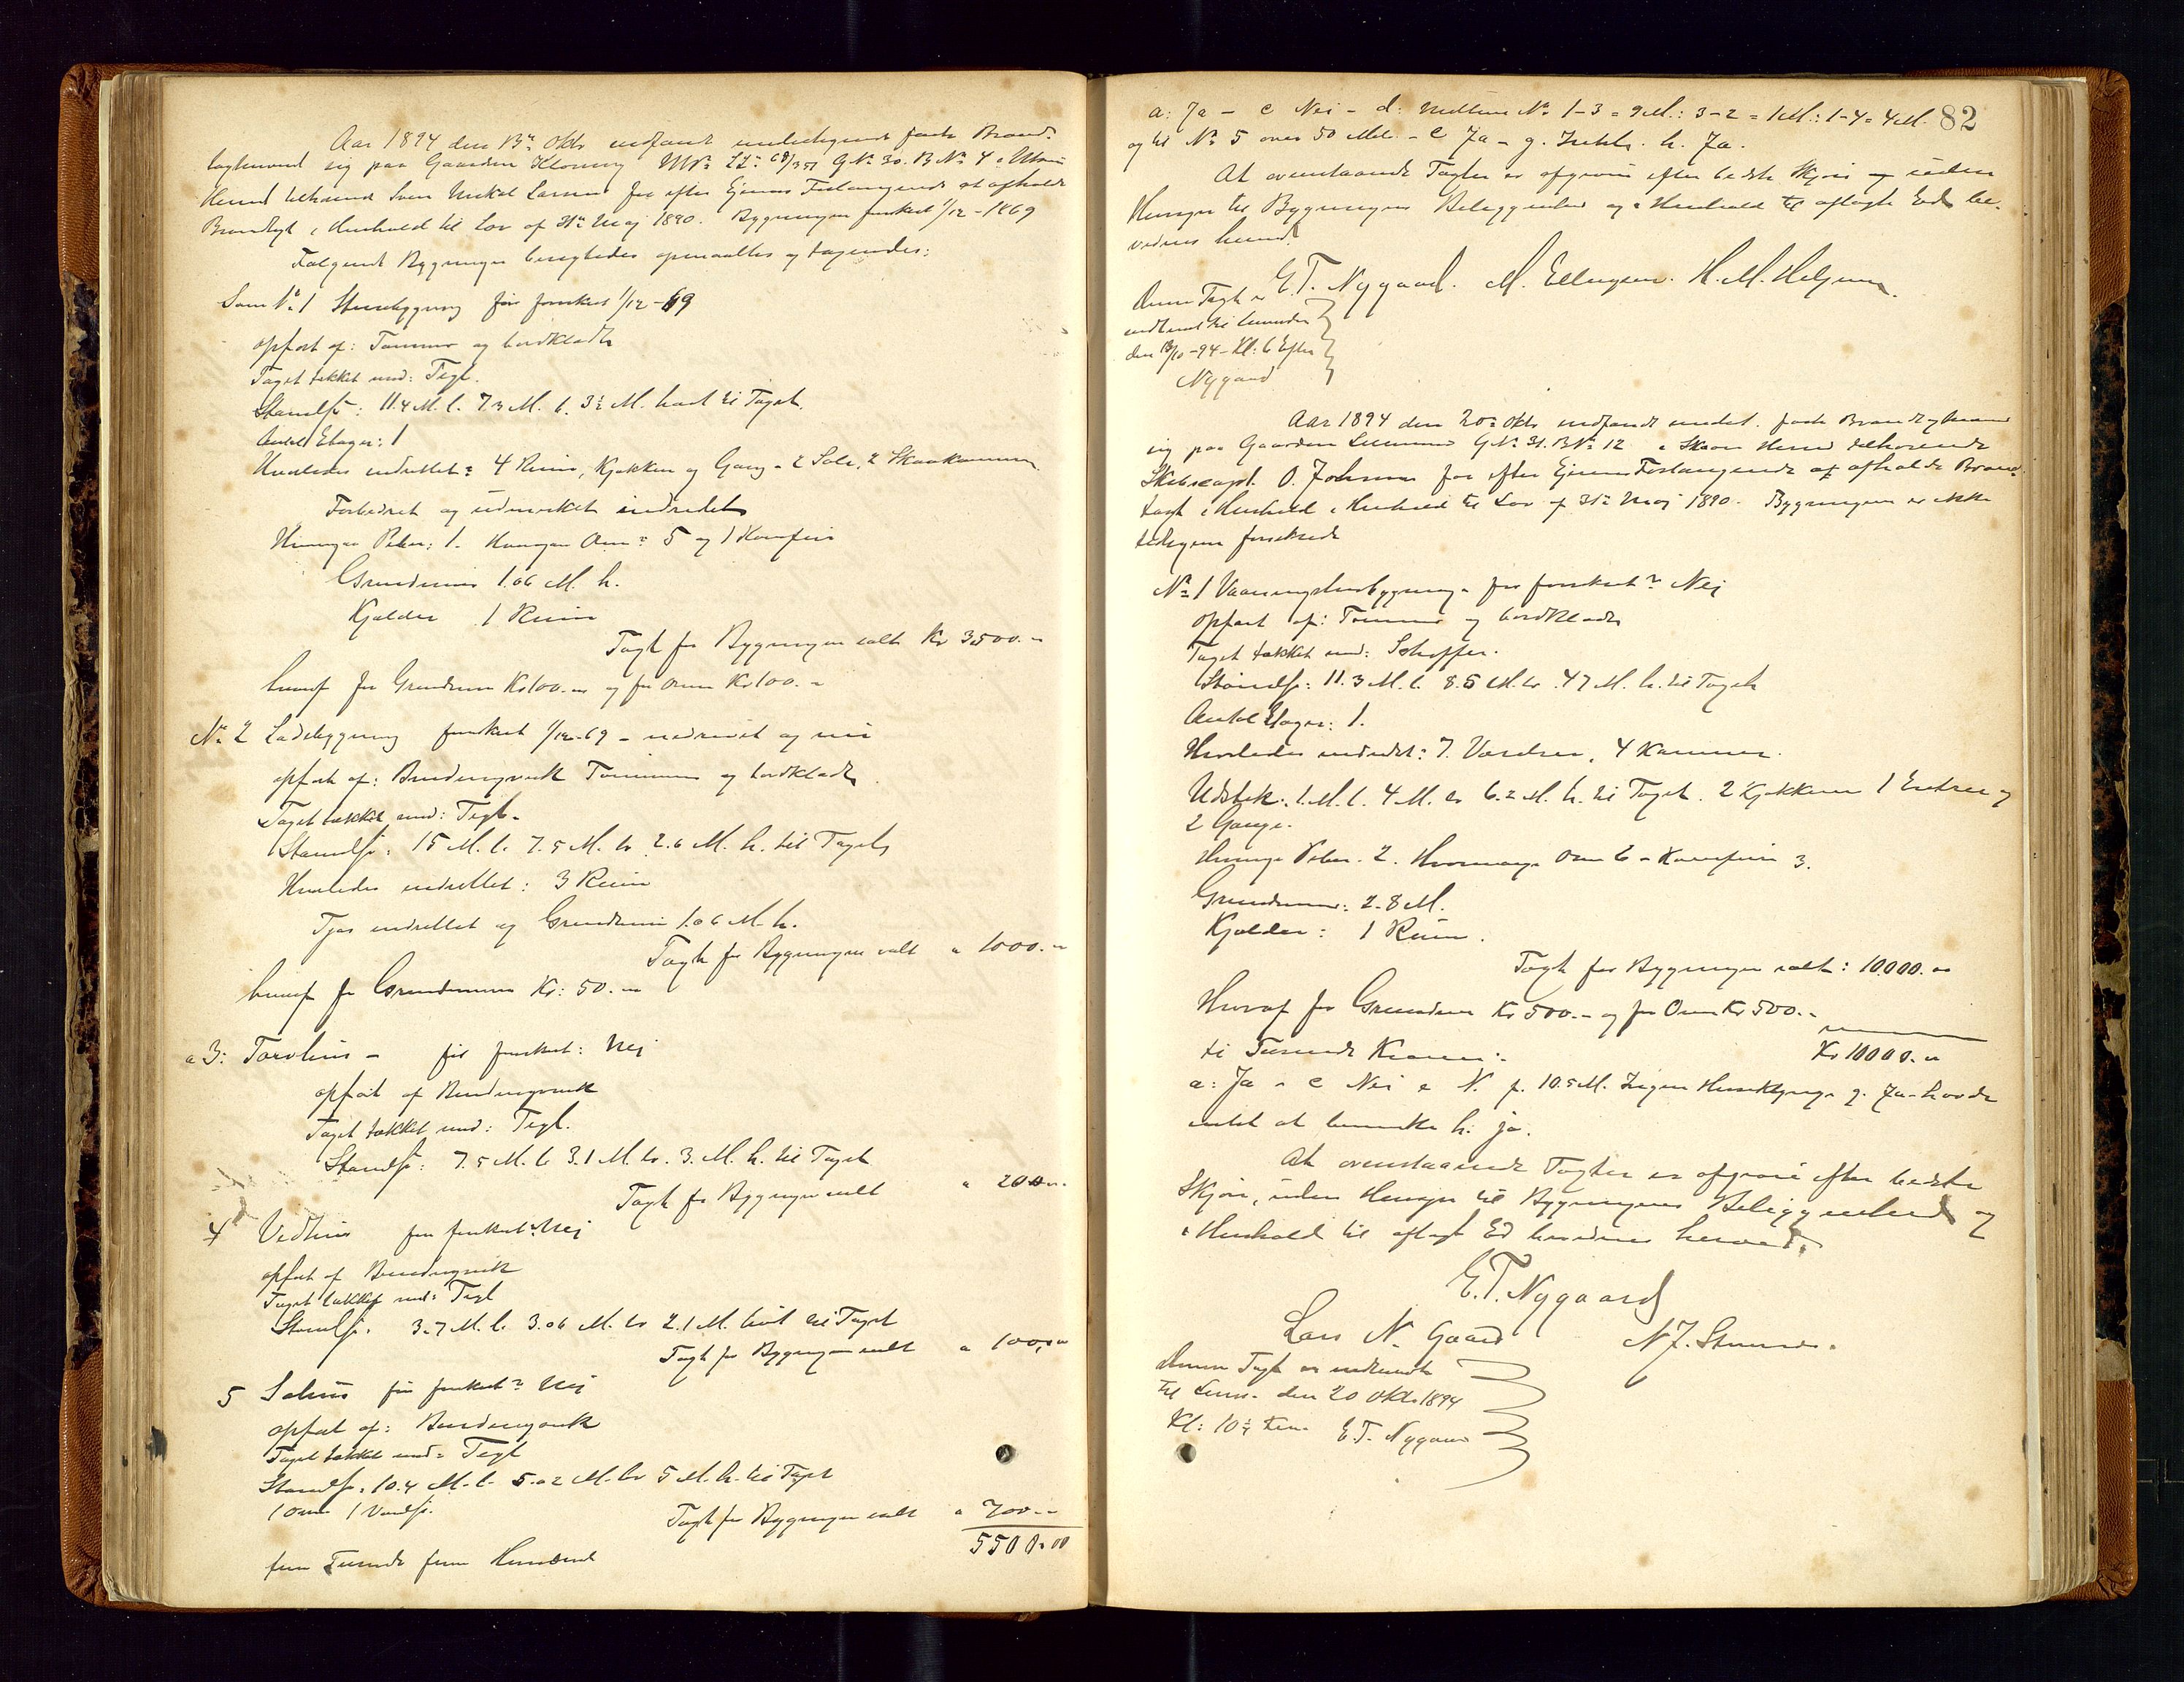 Aar 1894 den 13de Oktb indfandt undertegnede faste Brand-
tagtmænd sig paa Gaarden M.No. L.No 68/351 G.No. 30. B.No 4 i
Herred tilhørende Mikal Larsen for efter Ejerens Forlangende at afholde
Brandtagt i Henhold til Lov af 31te Maj 1890. Bygningen forsikret 1/12-1869
Følgende Bygninger besigtedes opmaaltes og taxeredes:
Som No. 1 før forsikret 1/12-69
opført af: Tømmer og bordklædt
Taget tækket med: Tegl.
Størrelse: 11.4 M. l. 7.3 M. b. 3½ M. høit til Taget.
Antal Etager: 1
Hvorledes indrettet: 4 Rum, Kjøkken og Gang - 2 Sale, 2
Forbedret og indredet
Hvormange Piber: 1. Hvormange Ovne: 5 og 1 Komfur
Grundmur 1.06 M. h.
Kjælder 1 Rum
Tagt for Bygningen ialt Kr 3500.-
hvoraf for Grundmur Kr 100.- og for Ovne Kr 100.-
No. 2 Ladebygning forsikret 1/12-69 - nedrevet og
opført af: Bindingsværk Tømmer og bordklædt
Taget tækket med: Tegl-
Størrelse: 15 M. l. 7.5 M. b 2.6 M. h. til Taget
Hvorledes indrettet: 3 Rum
indrettet og Grundmur 1.06 M. h.
Tagt for Bygningen ialt " 1000.-
hvoraf for Grundmuren Kr: 50.-
" 3: Torvhus - før forsikret: Nej
opført af Bindingsværk
Taget tækket med: Tegl.
Størrelse: 7.5 M. l. 3.1 M. b. 3. M. h. til Taget
Tagt for Bygningen ialt " 200.-
4 Vedhus før forsikret: Nej
opført af Bindingsværk
Taget tækket med: Tegl
Størrelse: 3.7 M. l. 3.06 M. b 2.1 M. høit til Taget
Tagt for Bygningen ialt " 100.-
5 før forsikret? Nej
opført af: Bindingsværk
Taget tækket med: Tegl
Størrelse: 10.4 M. l. 5.02 M. b 5 M. h. til Taget
1 Ovn
Tagt for Bygningen ialt " 700.-
fem Tusinde fem Hundrede
5500.00
82
a: Ja - c Nei - d: mellem No. 1-3 = 9 M.: 3-2 = 1 M.: 1-4 = 4 M.
og til No 5 over 50 Met. - e Ja - g. h. Ja.
At ovenstaaende Tagter er afgivne efter bedste Skjøn og uden
Hensyn til Bygningens Beliggenhed og i Henhold til aflagte Eed be-
vidnes herved.
E.T. Nygaard. M. Ellingsen. H. M. Helgesen.
Denne Tagt er
indsendt til
den 13/10-94 - Kl: 6 Efter
Nygaard
Aar 1894 den 20de Oktb indfandt undert. faste Brandtagtmænd
sig paa Gaarden G.No. 31. B.No 12 i Skaare Herred tilhørende
Skibscapt. O. Johnsen for efter Ejerens Forlangende at afholde Brand-
tagt i Henhold i Henhold til Lov af 31te Maj 1890. Bygningen er ikke
tidligere forsikrede
No. 1 Vaaningshusbygning. før forsikret? Nej
opført af: Tømmer og bordklædt
Taget tækket med: Schiffer.
Størrelse: 11.3 M. l. 8.5 M. b. 4.7 M. h. til Taget
Antal Etager: 1.
Hvorledes indredet: 7. Værelser, 4 Kammer.
Udstik: 1. M. l. 4 M. b 6.2 M. h. til Taget. 2 Kjøkkener 1 Entree og
2 Gange.
Hvormange Piber. 2. Hvormange Ovne 6 - Komfurer 3.
Grundmur: 2.8 M.
Kjælder: 1 Rum.
Tagt for Bygningen ialt: 10.000.-
Hvoraf for Grundmur Kr 500.- og for Ovne Kr 500.-
ti Tusinde Kroner:-
Kr 10000.-
a: Ja - c Nei e N. f. 10.5 M. Ingen g. Ja - havde
intet at bemærke h. ja.
At ovenstaaende Tagter er afgivne efter bedste
Skjøn, uden Hensyn til Bygningens Beliggenhed og
i Henhold til aflagt Ed bevidnes herved.
E.T. Nygaard
Lars N. Gaard N J.
Denne Tagt er indsendt
til den 20 Oktb 1894
Kl: 10½ E.T. Nygaard